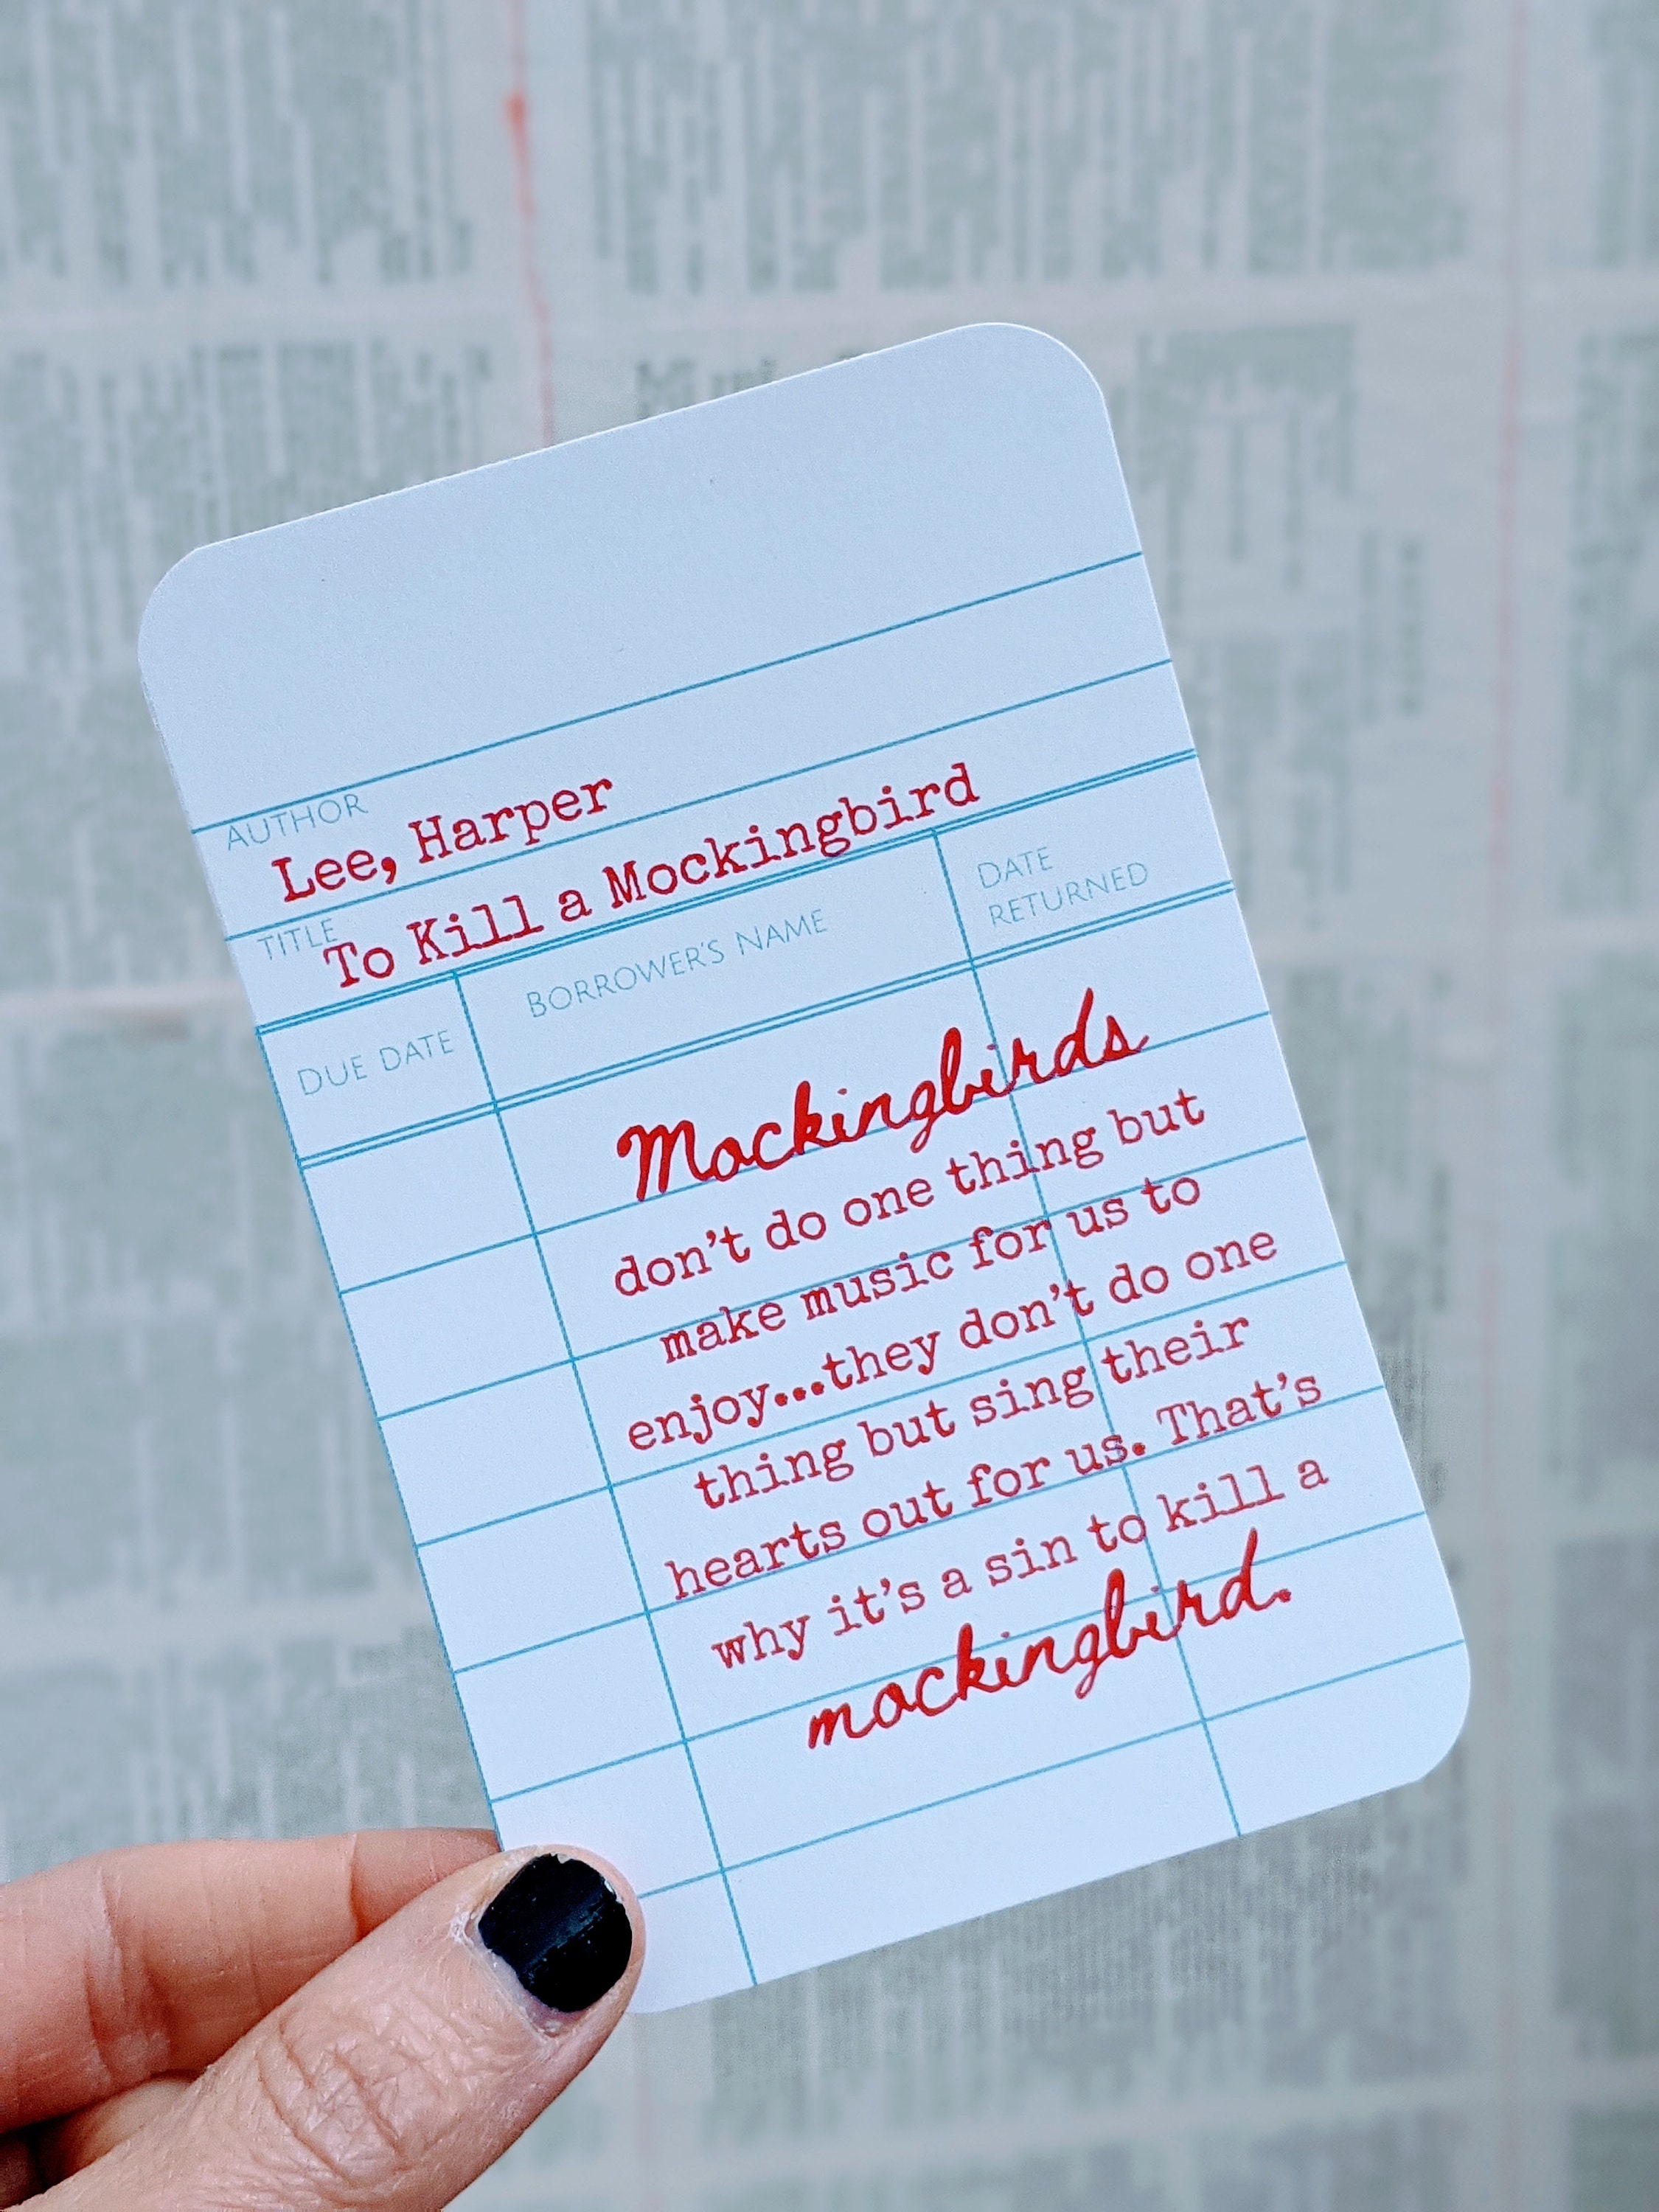 AUTHOR
Lee, Harper
TITLE
To Kill a Mockingbird
DUE DATE
BORROWER'S NAME
DATE
RETURNED
Mockingbirds
don't do one thing but
make music for us to
enjoy...they don't do one
thing but sing their
hearts out for us. That's
why it's a sin to kill a
mockingbird.